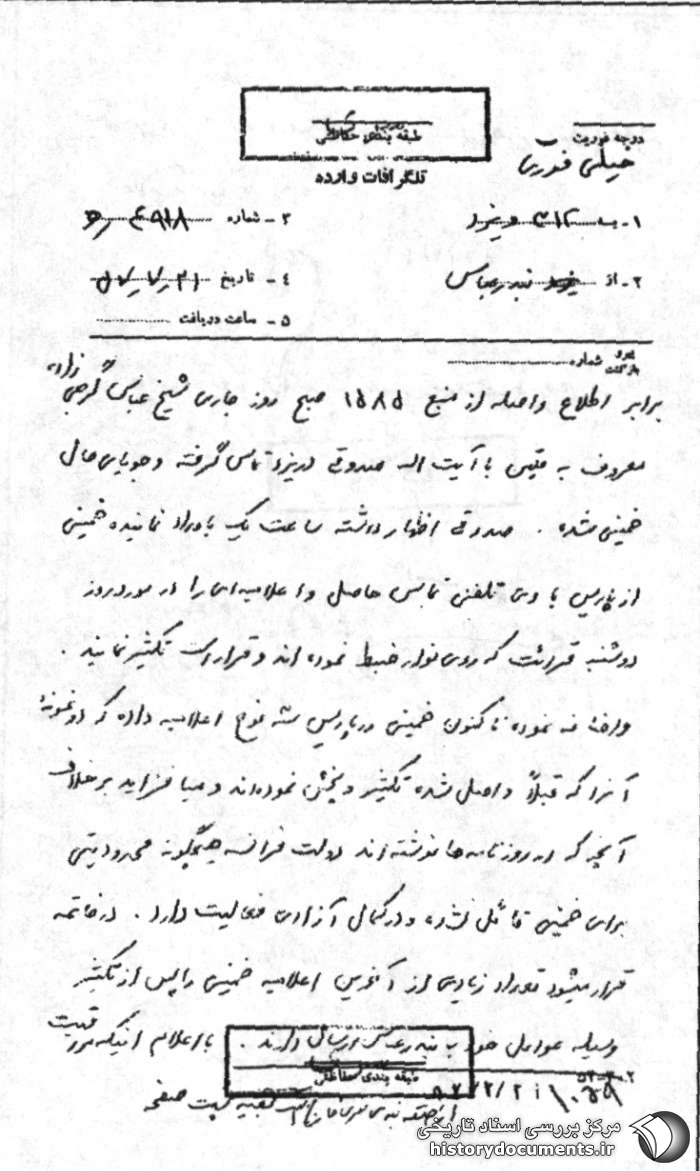 طبقه بندی حفاظتی
درجه فوریت
خیلی فوری
تلگرافات وارده
۱ - به ۳۱۲
۳ - شماره
۲ - از بندرعباس
۴ - تاریخ
۵ - ساعت دریافت
شماره
زاده
برابر اطلاع واصله از منبع ۱۵۸۵ صبح روز جاری شیخ عباس
معروف به مقیمی با آیت اله صدوقی در یزد تماس گرفته و جویای حال
خمینی شده . صدوقی اظهار داشته ساعت یک بامداد نماینده خمینی
از پاریس با وی تلفنی تماس حاصل و اعلامیه‌ای را در مورد روز
دوشنبه قرائت که روی نوار ضبط نموده اند و قرار است تکثیر نمایند .
و اضافه نموده تاکنون خمینی در پاریس سه نوع اعلامیه داده که دو نمونه
آنرا که قبلاً واصل شده تکثیر و پخش نموده‌اند و میافزاید برخلاف
آنچه که در روزنامه‌ها نوشته اند دولت فرانسه هیچگونه محدودیتی
برای خمینی قائل نشده و در کمال آزادی فعالیت دارد . در خاتمه
قرار میشود تعداد زیادی از آخرین اعلامیه خمینی را پس از تکثیر
وسیله عوامل خود به بندرعباس ارسال دارند . با اعلام اینکه مراقبت
طبقه بندی حفاظتی
مرکز بررسی اسناد تاریخی
historydocuments.ir